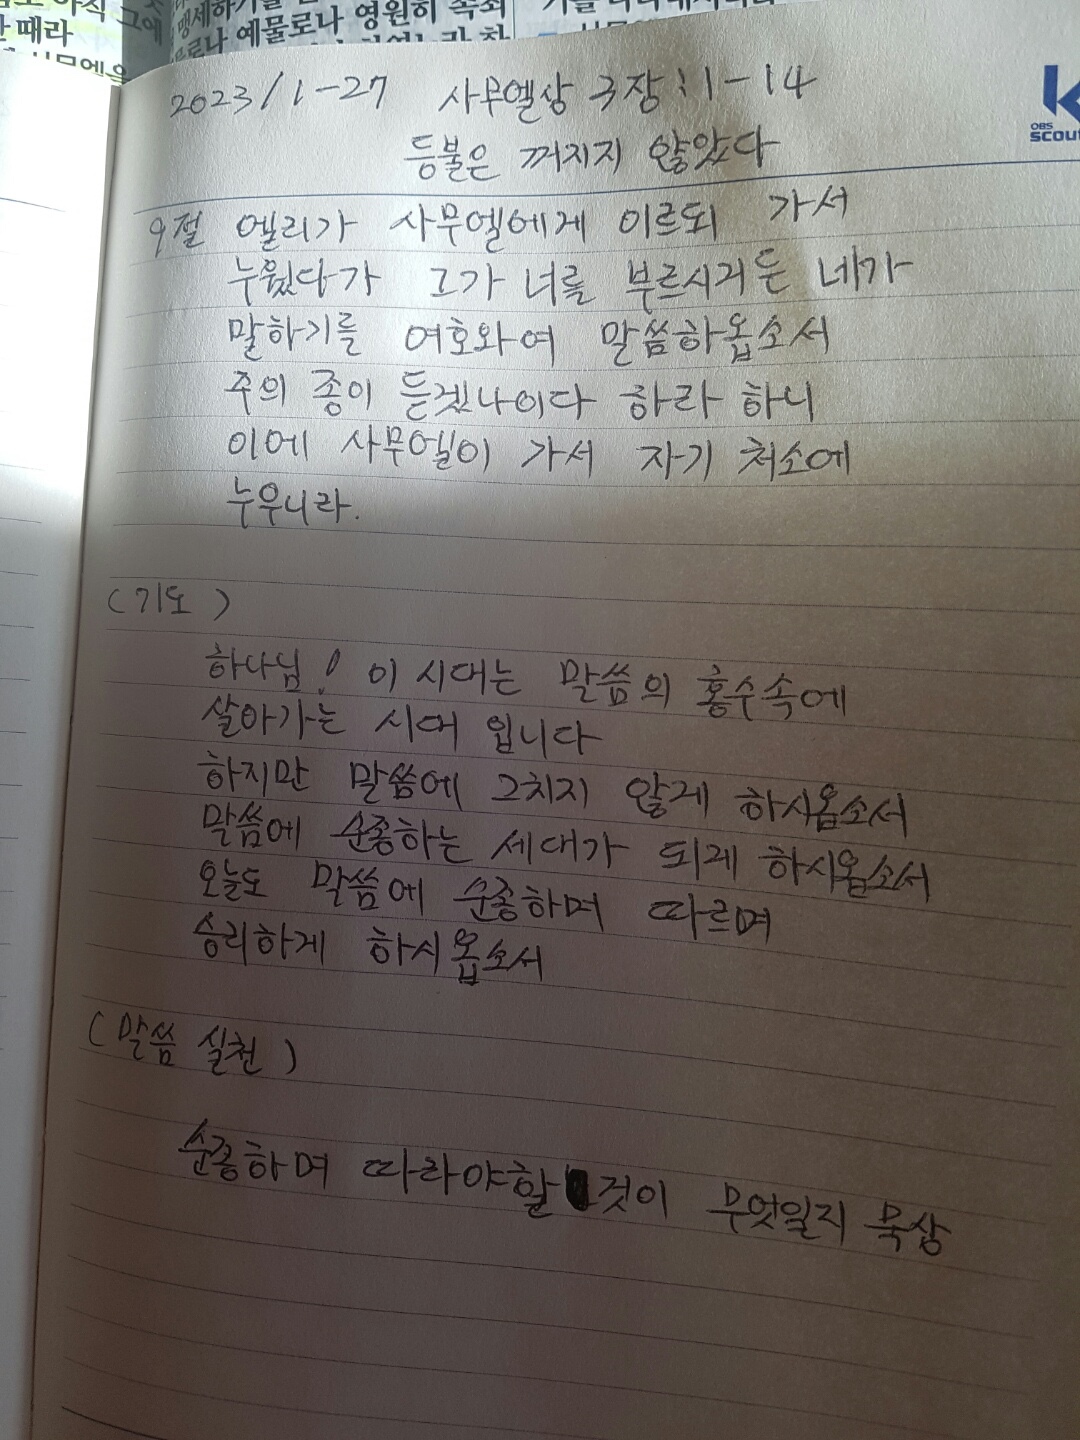 때라
맹세하기를
예물로나 영원히 속죄
2023/1-27 사무엘상 3장:1-14
등불은 꺼지지 않았다
9절 엘리가 사무엘에게 이르되 가서
누웠다가 그가 너를 부르시거든 네가
말하기를 여호와여 말씀하옵소서
주의 종이 듣겠나이다 하라 하니
이에 사무엘이 가서 자기 처소에
누우니라.
(기도)
하나님! 이 시대는 말씀의 홍수속에
살아가는 시대 입니다
하지만 말씀에 그치지 않게 하시옵소서
말씀에 순종하는 세대가 되게 하시옵소서
오늘도 말씀에 순종하며 따르며
승리하게 하시옵소서
(말씀 실천)
순종하며 따라야할 것이 무엇일지 묵상
OBS
SCOUT